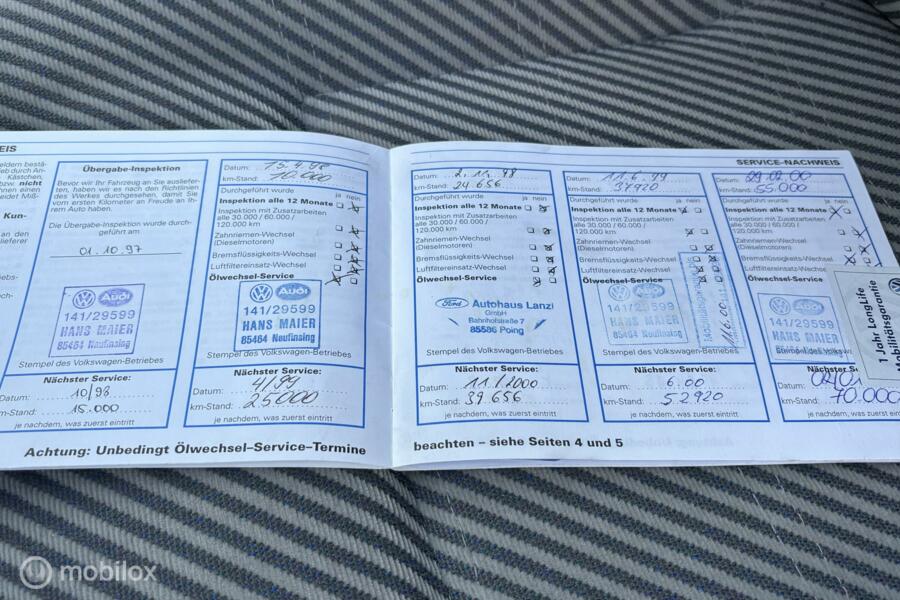 EIS
eldern bestä-
eb durch An-
Kästchen,
bzw. nicht
ehinen und
neidet Miß-
Kun-
an den
elieferer
Übergabe-Inspektion
Bevor wir Ihr Fahrzeug an Sie ausliefer-
ten, haben wir es nach den Richtlinien
des Werkes durchgesehen, damit Sie
vom ersten Kilometer an Freude an Ih-
rem Auto haben.
Die Übergabe-Inspektion wurde durch-
geführt am
01.10.97
Audi
141/29599
HANS MAIER
85464 Neufinsing
Stempel des Volkswagen-Betriebes
Nächster Service:
Datum: 10/98
km-Stand: 15.000
je nachdem, was zuerst eintritt
Datum: 15.4.98
km-Stand: 10.000
Durchgeführt wurde ja nein
Inspektion alle 12 Monate
Inspektion mit Zusatzarbeiten
alle 30.000 / 60.000 /
120.000 km
Zahnriemen-Wechsel
(Dieselmotoren)
Bremsflüssigkeits-Wechsel
Luftfiltereinsatz-Wechsel
Ölwechsel-Service
Audi
141/29599
HANS MAIER
85464 Neufinsing
Stempel des Volkswagen-Betriebes
Nächster Service:
Datum: 4/99
km-Stand: 25000
je nachdem, was zuerst eintritt
Achtung: Unbedingt Ölwechsel-Service-Termine
SERVICE-NACHWEIS
Datum: 2.11.98
km-Stand: 24.656
Durchgeführt wurde ja nein
Inspektion alle 12 Monate
Inspektion mit Zusatzarbeiten
alle 30.000 / 60.000 /
120.000 km
Zahnriemen-Wechsel
(Dieselmotoren)
Bremsflüssigkeits-Wechsel
Luftfiltereinsatz-Wechsel
Ölwechsel-Service
Ford Autohaus Lanzl
GmbH
Bahnhofstraße 7
85586 Poing
Stempel des Volkswagen-Betriebes
Nächster Service:
Datum: 11/2000
km-Stand: 39 656
je nachdem, was zuerst eintritt
Datum: 11.6.99
km-Stand: 37920
Durchgeführt wurde ja nein
Inspektion alle 12 Monate
Inspektion mit Zusatzarbeiten
alle 30.000 / 60.000 /
120.000 km
Zahnriemen-Wechsel
(Dieselmotoren)
Bremsflüssigkeits-Wechsel
Luftfiltereinsatz-Wechsel
Ölwechsel-Service
141/29599
HANS MAIER
85464 Neufinsing
Stempel des Volkswagen-Betriebes
Nächster Service:
Datum: 6.00
km-Stand: 52920
je nachdem, was zuerst eintritt
Datum: 29.02.00
km-Stand: 55.000
Durchgeführt wurde ja nein
Inspektion alle 12 Monate
Inspektion mit Zusatzarbeiten
alle 30.000 / 60.000 /
120.000 km
Zahnriemen-Wechsel
(Dieselmotoren)
Bremsflüssigkeits-Wechsel
Luftfiltereinsatz-Wechsel
Ölwechsel-Service
141/29599
HANS MAIER
85464 Neufinsing
1 Jahr LongLife
Mobilitätsgarantie
Nächster
Datum:
km-Stand: 70.000
je nachdem, was zuerst eintritt
beachten – siehe Seiten 4 und 5
mobilox